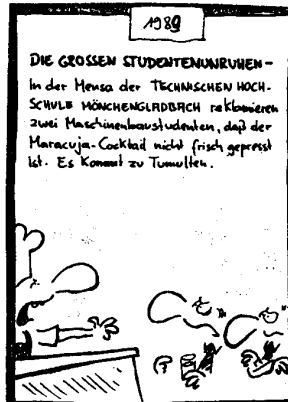 1989
DIE GROSSEN STUDENTENUNRUHEN-
In der Mensa der TECHNISCHEN HOCH-
SCHULE MÖNCHENGLADBACH reklamieren
zwei Maschinenbaustudenten, daß der
Maracuja-Cocktail nicht frisch gepresst
ist. Es kommt zu Tumulten.